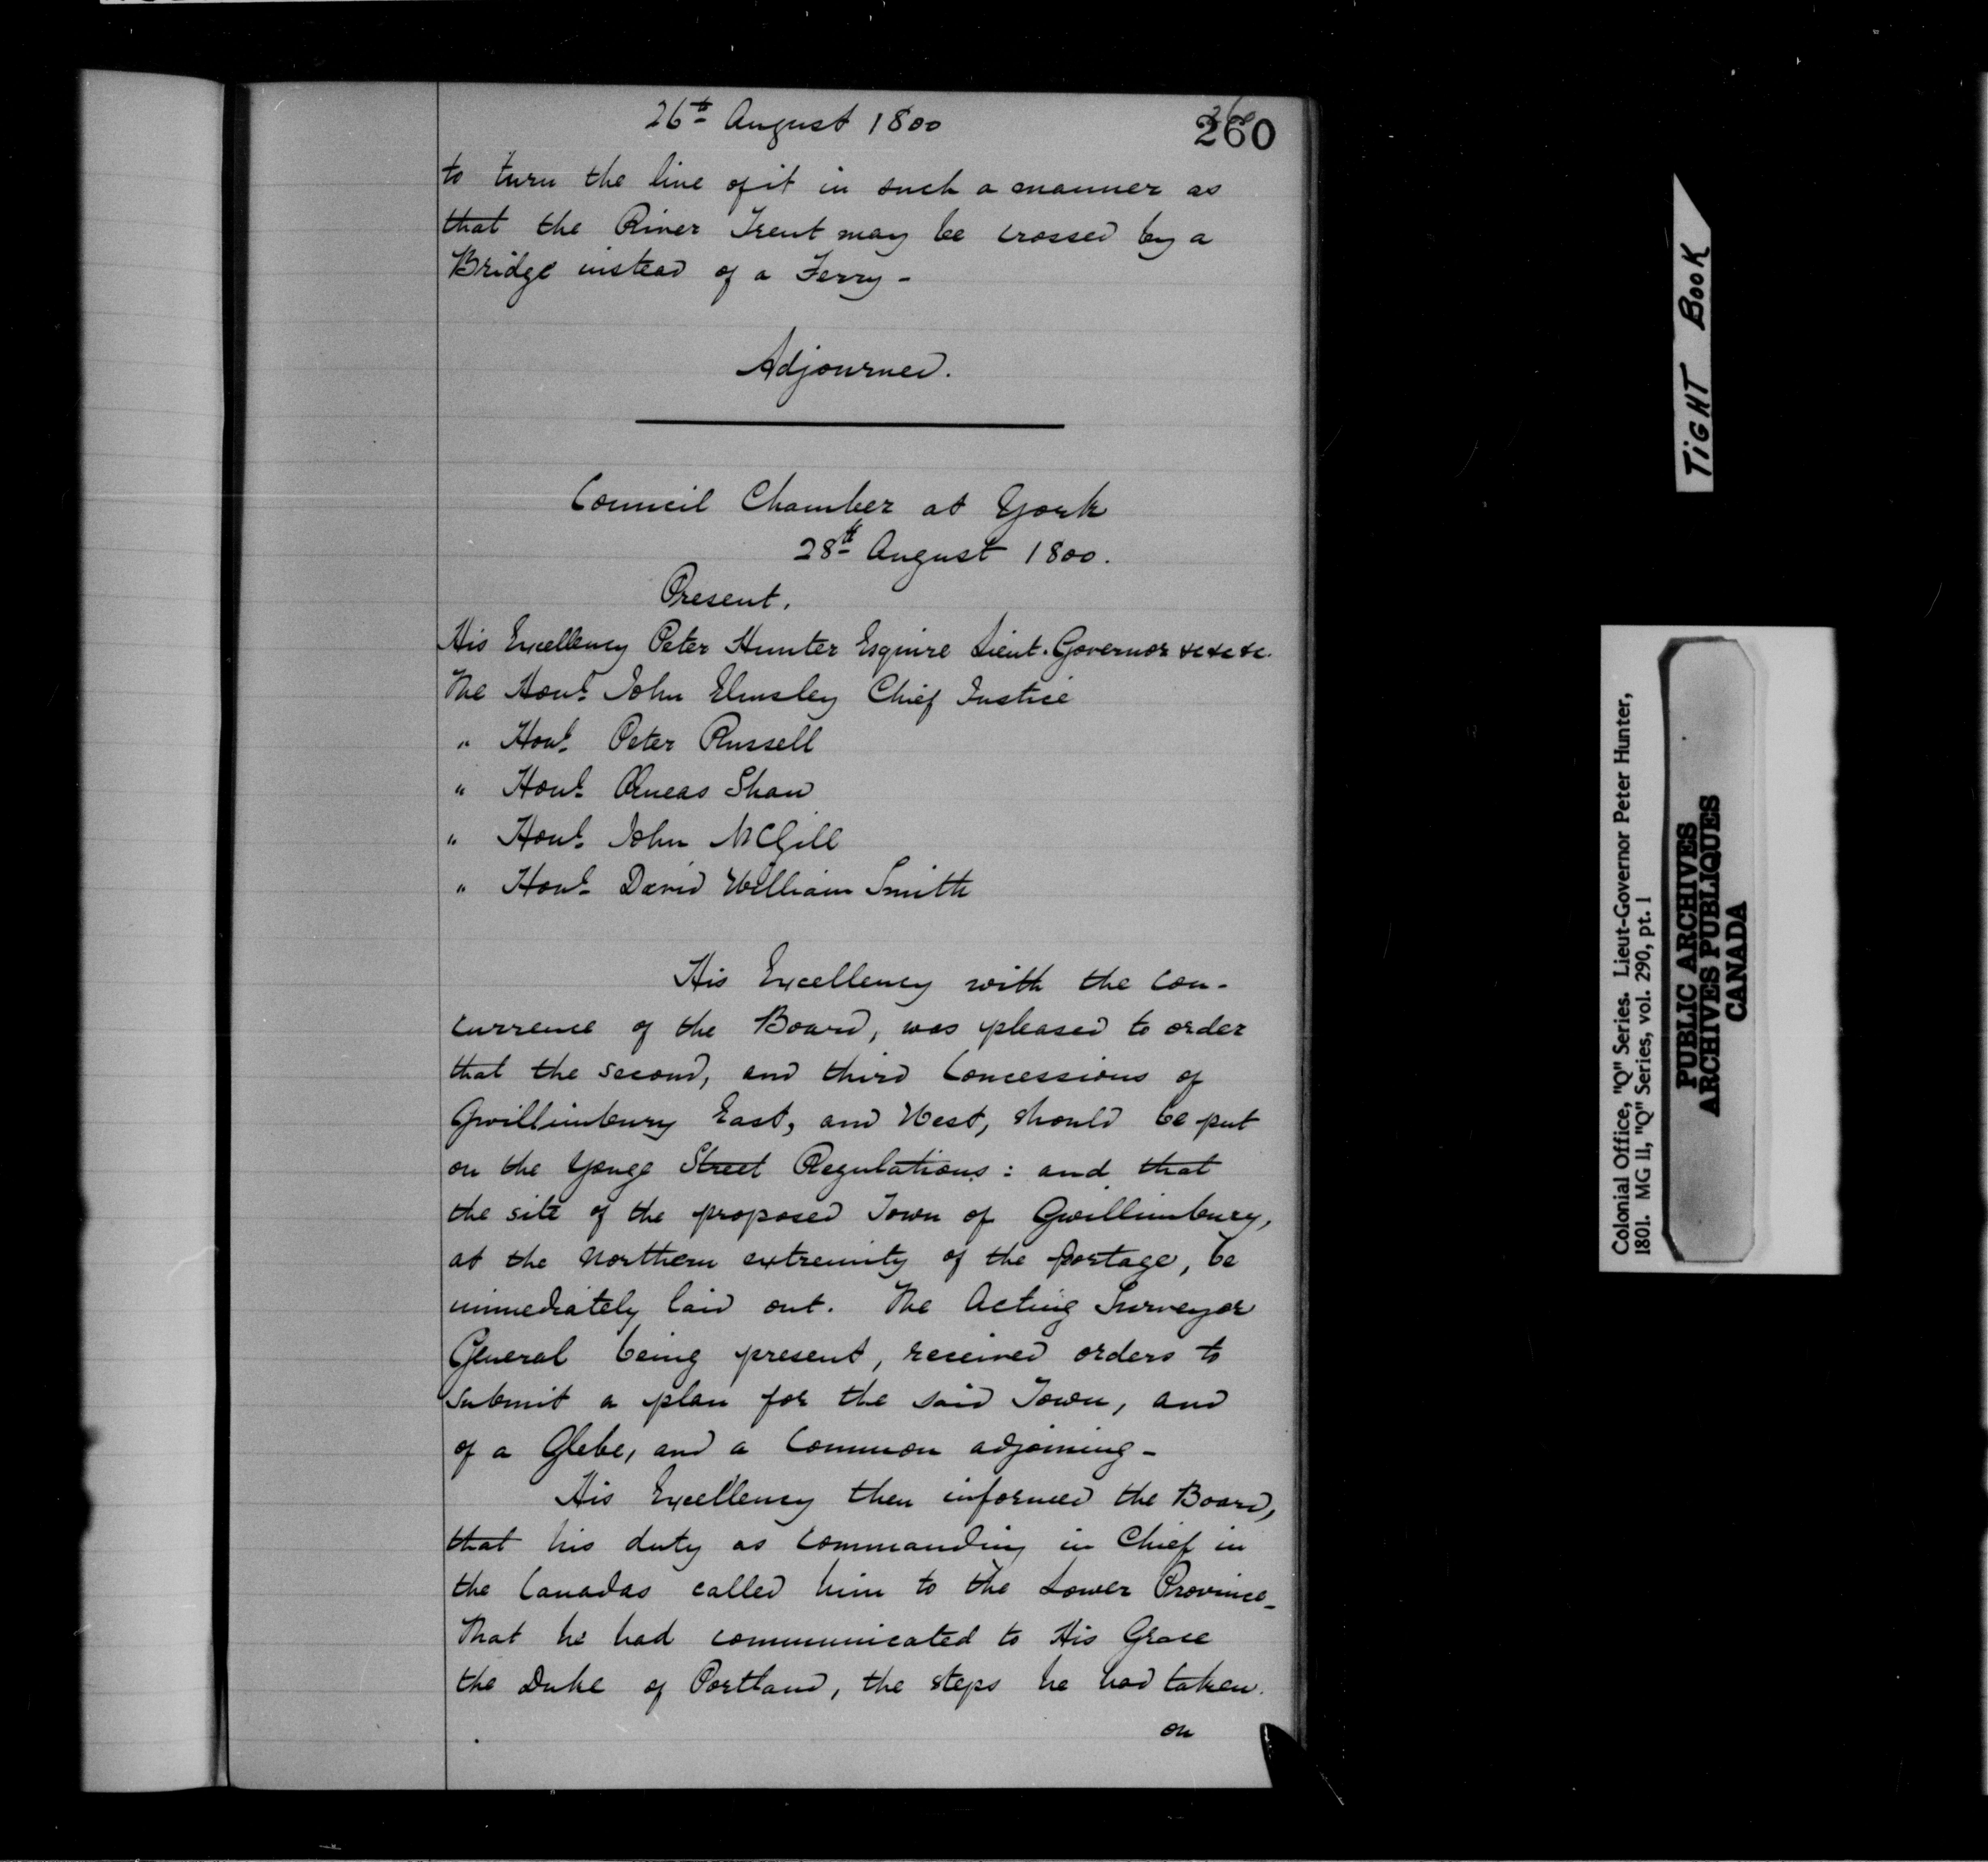 26th August 1800
260
to turn the line of it in such a manner as
that the River Trent may be crossed by a
Bridge instead of a Ferry -
Adjourned.
Council Chamber at York
28th August 1800.
Present.
His Excellency Peter Hunter Esquire Lieut. Governor &c &c &c.
The Honl. John Elmsley Chief Justice
" Honl. Peter Russell
" Honl. Æneas Shaw
" Honl. John McGill
" Honl. David William Smith
His Excellency with the con-
currence of the Board, was pleased to order
that the second, and third Concessions of
Gwillimbury East, and West, should be put
on the Yonge Street Regulations: and that
the site of the proposed Town of Gwillimbury,
at the Northern extremity of the portage, be
immediately laid out. The Acting Surveyor
General being present, received orders to
submit a plan for the said Town, and
of a Glebe, and a Common adjoining -
His Excellency then informed the Board,
that his duty as Commanding in Chief in
the Canadas called him to the Lower Province -
That he had communicated to His Grace
the Duke of Portland, the steps he had taken.
on
TiGHT BOOK
Colonial Office, "Q" Series. Lieut-Governor Peter Hunter,
1801. MG 11, "Q" Series, vol. 290, pt. 1
PUBLIC ARCHIVES
ARCHIVES PUBLIQUES
CANADA